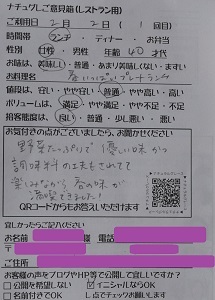 ナチュグレご意見箱(レストラン用)
ご利用日 2月 2日 ( 1回目)
時間帯 ランチ・ディナー・お弁当
性別 女性・男性 年齢 40 才代
お味は、美味しい・普通・あまり美味しくない・まずい
お料理名
値段は、安い・やや安い・普通・やや高い・高い
ボリュームは、満足・やや満足・普通・やや不足・不足
接客態度は、良い・普通・少し悪い・悪い
お気付きの点がございましたら、お聞かせください
野菜たっぷりで優しい味から
調味料の工夫もされてて
楽しみながら春の味が
満喫できました!
QRコードからもお答えいただけます
宜しかったらご記入ください
お名前 様 電話
〒
ご住所
お客様の声をブログやHP等で公開して宜しいですか?
□公開を希望しない ☑イニシャルならOK
□名前付きでOK し点でチェックお願いします